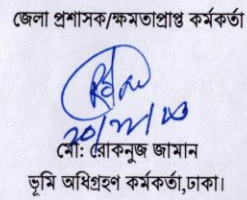 জেলা প্রশাসক/ক্ষমতাপ্রাপ্ত কর্মকর্তা
মো: রোকনুজ জামান
ভূমি অধিগ্রহণ কর্মকর্তা,ঢাকা।